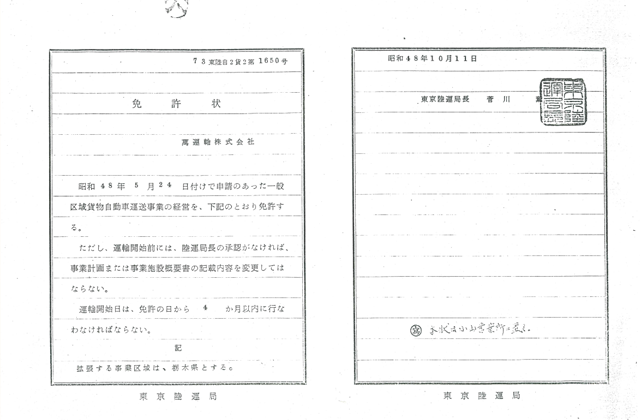 73東陸自2貨2第1650号
免許状
萬運輸株式会社
昭和48年5月24日付けで申請のあった一般
区域貨物自動車運送事業の経営を、下記のとおり免許す
る。
ただし、運輸開始前には、陸運局長の承認がなければ、
事業計画または事業施設概要書の記載内容を変更しては
ならない。
運輸開始日は、免許の日から4か月以内に行な
わなければならない。
記
拡張する事業区域は、栃木県とする。
東京陸運局
昭和48年10月11日
東京陸運局長 菅川
東京陸運局